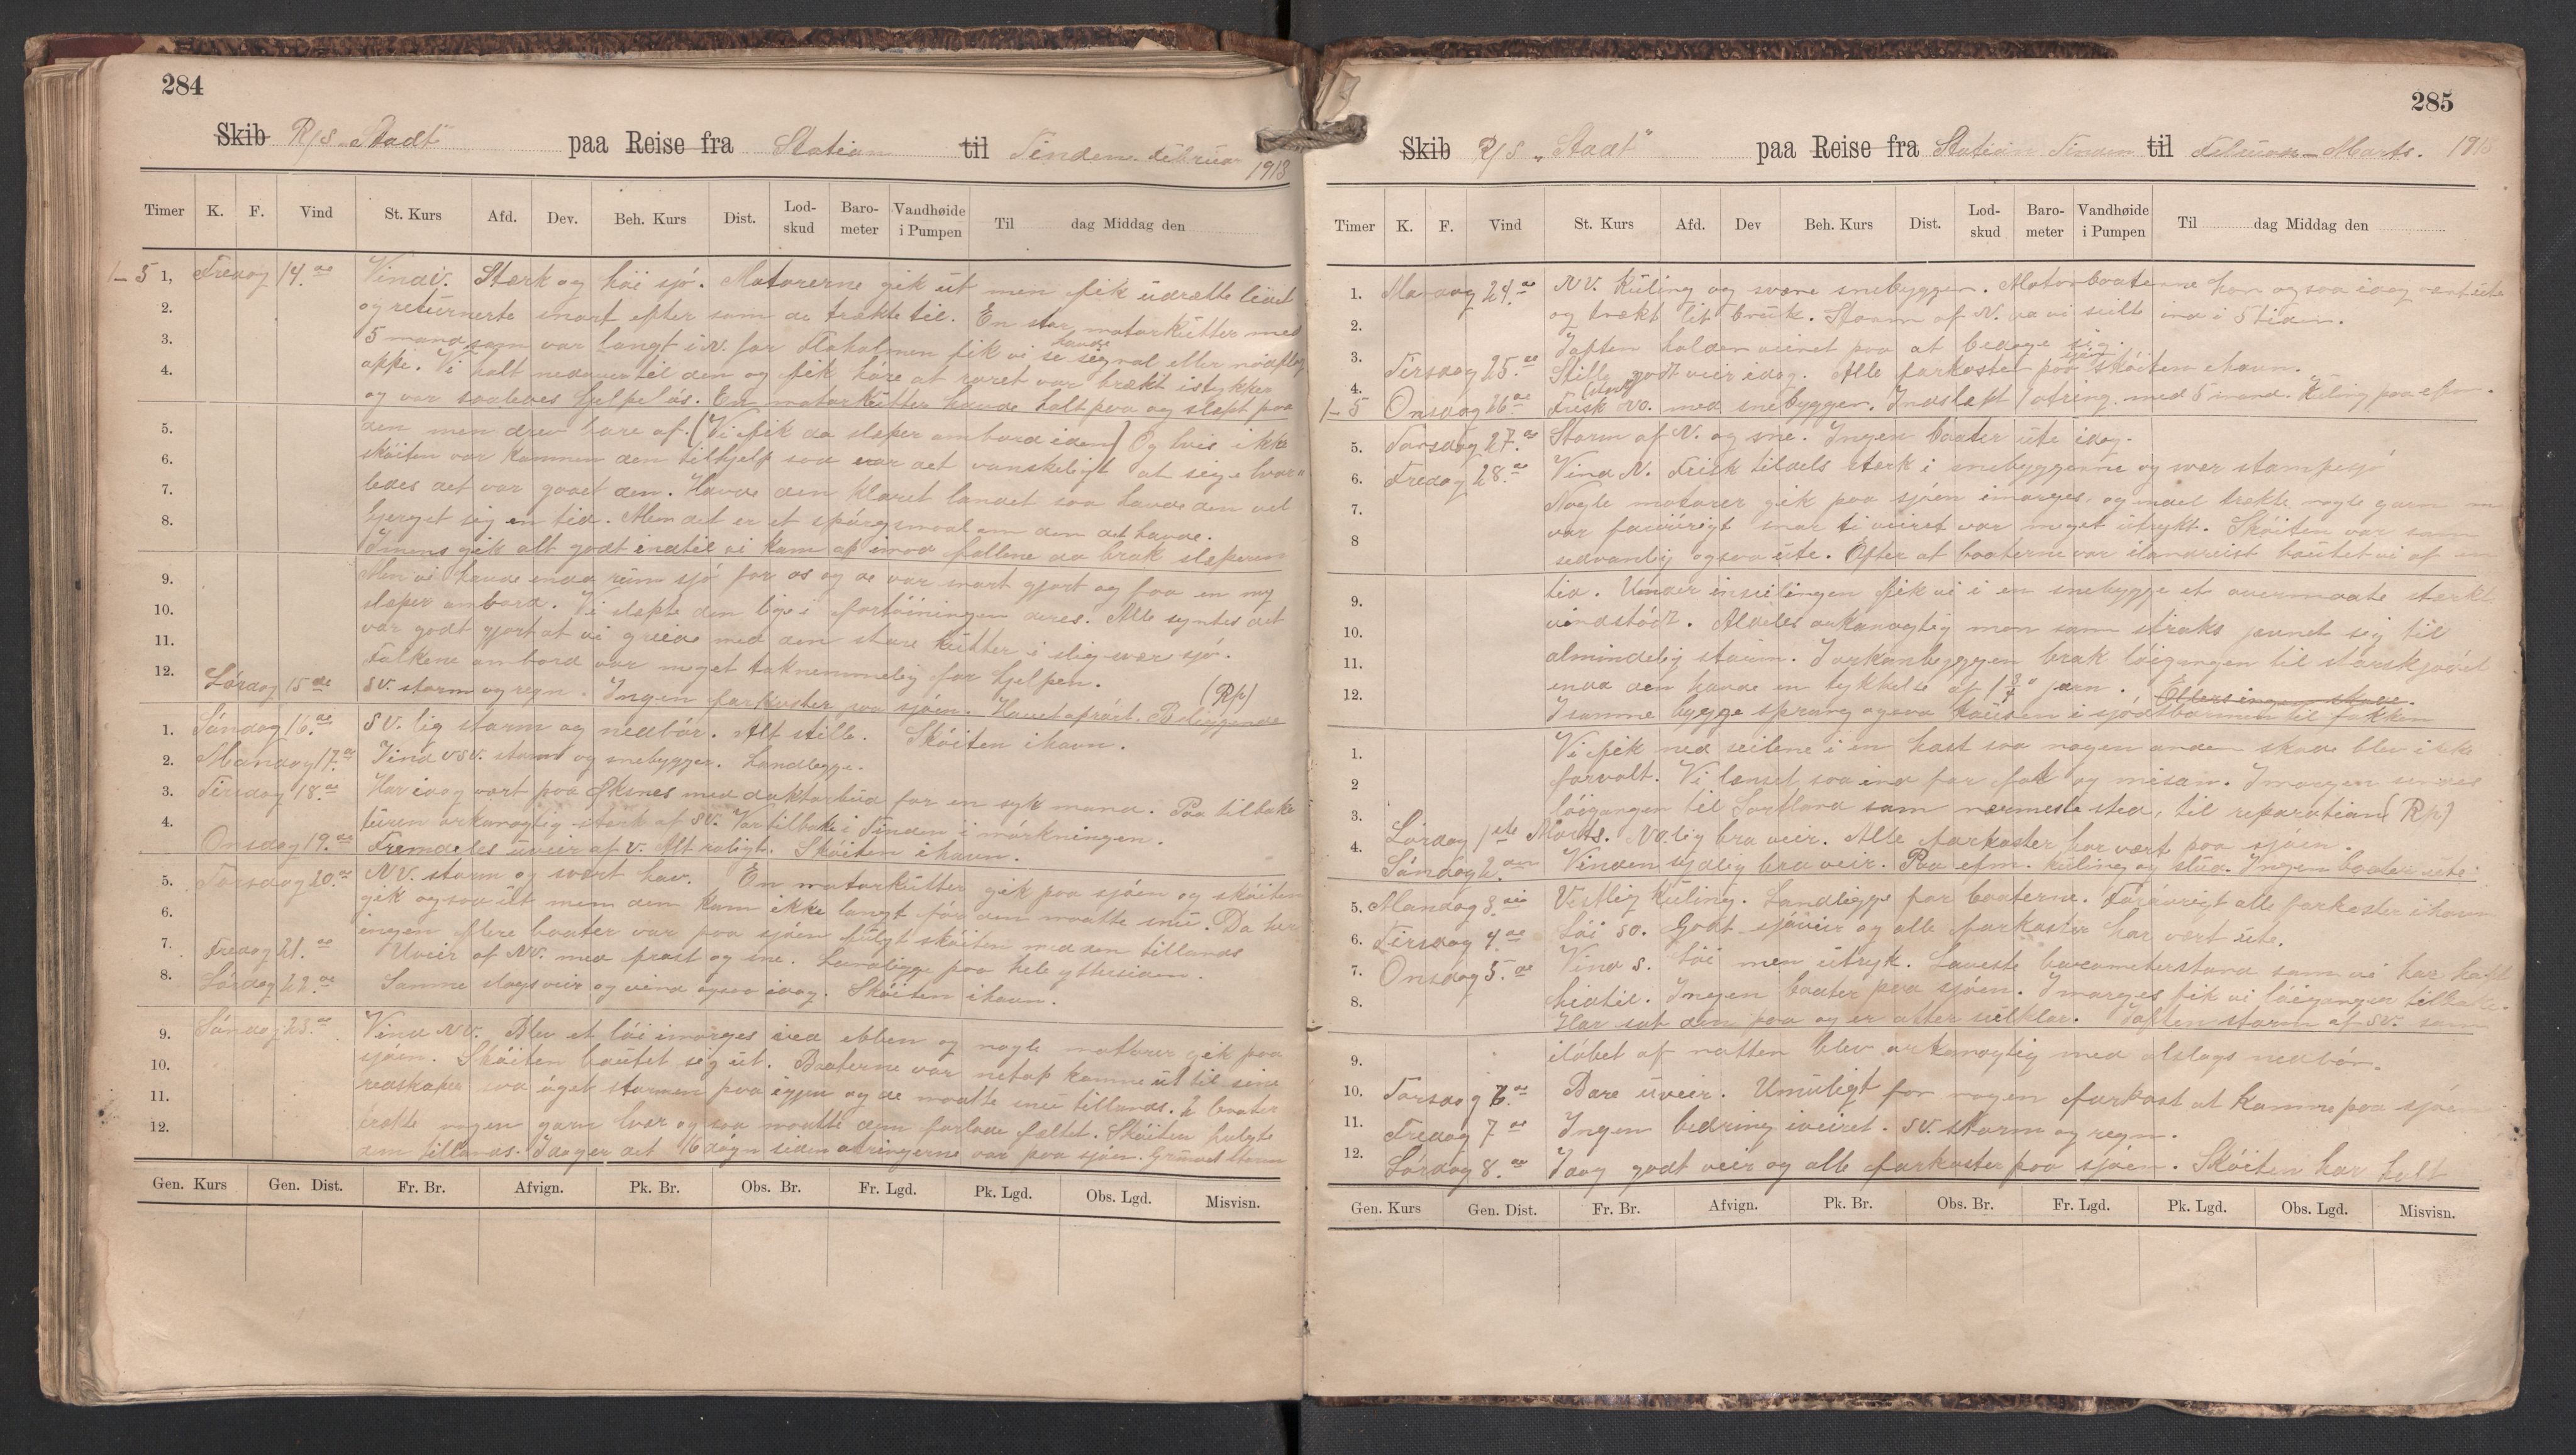 284
Skib R/S „Stadt" paa Reise fra Station til Tinden. Februar 1913
Timer K. F. Vind St. Kurs Afd. Dev. Beh. Kurs Dist. Lod-skud Baro-meter Vandhøide i Pumpen Til dag Middag den
1–5 1, Fredag 14.de Vind V. Stærk og höi sjö. Motorerne gik ut men fik udrætte litet
2. og returnerte snart efter som de trækte til. En stor motorkutter med
3. 5 mand som var langt i N. for Flaholmen fik vi se havde signal eller nödflag
4. oppe. Vi holt nedover til den og fik höre at roret var brækt istykker
og var saaledes hjelpelös. En motorkutter havde holt paa og slæpt paa
5. den men drev bare af. (Vi fik da slæper ombord i den) Og hvis ikke
6. sköiten var kommen den tilhjelp saa var det vanskeligt at sige hvor-
7. ledes det var gaaet den. Havde den klaret landet saa havde den vel
8. bjerget sig en tid. Men det er et spörgsmaal om den det havde.
Imens gik alt godt indtil vi kom op imod fallene da brak slæperen
9. Men vi havde enda rum sjö for os og de var snart gjort og faa en ny
10. slæper ombord. Vi slæpte den lige i fortöiningen deres. Alle syntes det
11. var godt gjort at vi greide med den store kutter i slig svær sjö.
12. Folkene ombord var meget taknemmelig for hjelpen. (Rp)
Lördag 15de SV. storm og regn. Ingen farkoster paa sjöen. Havet oprört. Beliggende
1. Söndag 16.de SV. lig storm og nedbör. Alt stille. Sköiten i havn.
2. Mandag 17.de Vind VSV. storm og snebygger. Landligge.
3. Tirsdag 18.de Har idag vært paa Öksnes med doktorbud for en syk mand. Paa tilbake
4. turen orkanagtig stærk af SV. Var tilbake i Tinden i mörkningen.
Onsdag 19.de Fremdeles uveir af V. Alt roligt. Sköiten i havn.
5. Torsdag 20.de NV. storm og svært hav. En motorkutter gik paa sjöen og sköiten
6. gik ogsaa ut men den kom ikke langt för den maatte snu. Da her
7. ingen flere baater var paa sjöen fulgt sköiten med den tillands
Fredag 21.de Uveir af NV. med frost og sne. Landligge paa hele yttersiden.
8. Lördag 22.de Samme slags veir og vind ogsaa idag. Sköiten i havn.
9. Söndag 23.de Vind NV. Blev et löi imorges ved ebben og nogle motorer gik paa
10. sjöen. Sköiten bautet sig ut. Baaterne var netop komne ut til sine
11. redskaper saa öget stormen paa igjen og de maatte snu tillands. 2 baater
12. trækte nogen garn hver og saa maatte dem forlade feltet. Sköiten fulgte
dem tillands. Idag er det 16 dögn siden otringerne var paa sjöen. Grunnet storm
Gen. Kurs Gen. Dist. Fr. Br. Afvign. Pk. Br. Obs. Br. Fr. Lgd. Pk. Lgd. Obs. Lgd. Misvisn.
285
Skib R/S „Stadt" paa Reise fra Station Tinden til Februar – Marts. 1913
Timer K. F. Vind St. Kurs Afd. Dev Beh. Kurs Dist. Lod-skud Baro-meter Vandhøide i Pumpen Til dag Middag den
1. Mandag 24.de NV. kuling og svære snebygger. Motorbaatenne har ogsaa idag vært ute
2. og trækt lit bruk. Storm af N. da vi seilte ind i 5 tiden.
3. Iaften holder veiret paa at bedage sig.
Tirsdag 25.de Stille godt veir idag. Alle farkoster paa sjöen sköiten i havn.
4. 1–5 Onsdag 26.de Frisk NO. med snebygger. Indslæpt 1 otring med 5 mand. Kuling paa efm.
5. Torsdag 27.de Storm af N. og sne. Ingen baater ute idag.
6. Fredag 28.de Vind N. Frisk tildels stærk i snebyggerne og svær stampesjö
7. Nogle motorer gik paa sjöen imorges, og endel trækte nogle garn
var foröverigt snar ti veiret var meget utrykt. Sköiten var som
8 sedvanlig ogsaa ute. Efter at baaterne var ilandreist bautet vi af en
tid. Under inseilingen fik vi i en snebygge et overmaate stærkt
9. vindstöd. Aldeles orkanagtig men som straks jevnet sig til
10. almindelig storm. I orkanbyggen brak löigangen til storskjödet
11. enda den havde en tykkelse af 1 3/4" jern. Ellers ingen skade.
12. I samme bygge sprang ogsaa kausen i sjödbarmen til fokken
1. Vi fik ned seilene i en hast saa nogen anden skade blev ikke
2 forvolt. Vi lænset saa ind for fok og misan. Imorgen sendes
3. löigangen til Sortland som nærmeste sted, til reparation (Rp)
Lördag 1ste Marts. NO.lig bra veir. Alle farkoster har vært paa sjöen.
4. Söndag 2.den Vinden sydlig bra veir. Paa efm. kuling og slud. Ingen baater ute.
5. Mandag 3.die Vestlig kuling. Landligge for baaterne. Foröverigt alle farkoster i havn
6. Tirsdag 4.de Löi SO. Godt sjöveir og alle farkoster har vært ute.
7. Onsdag 5.de Vind S. löi men utryk. Laveste barometerstand som vi har hatt
8. hidtil. Ingen baater paa sjöen. Imorges fik vi löigangen tilbake.
Har sat den paa og er atter seilklar. Iaften storm af SV. som
9. ilöbet af natten blev orkanagtig med alslags nedbör.
10. Torsdag 6.de Bare uveir. Umuligt for nogen farkost at komme paa sjöen
11. Fredag 7de Ingen bedring i veiret. SV. storm og regn.
12. Lördag 8.de Idag godt veir og alle farkoster paa sjöen. Sköiten har holt
Gen. Kurs Gen. Dist. Fr. Br. Afvign. Pk. Br. Obs. Br. Fr. Lgd. Pk. Lgd. Obs. Lgd. Misvisn.